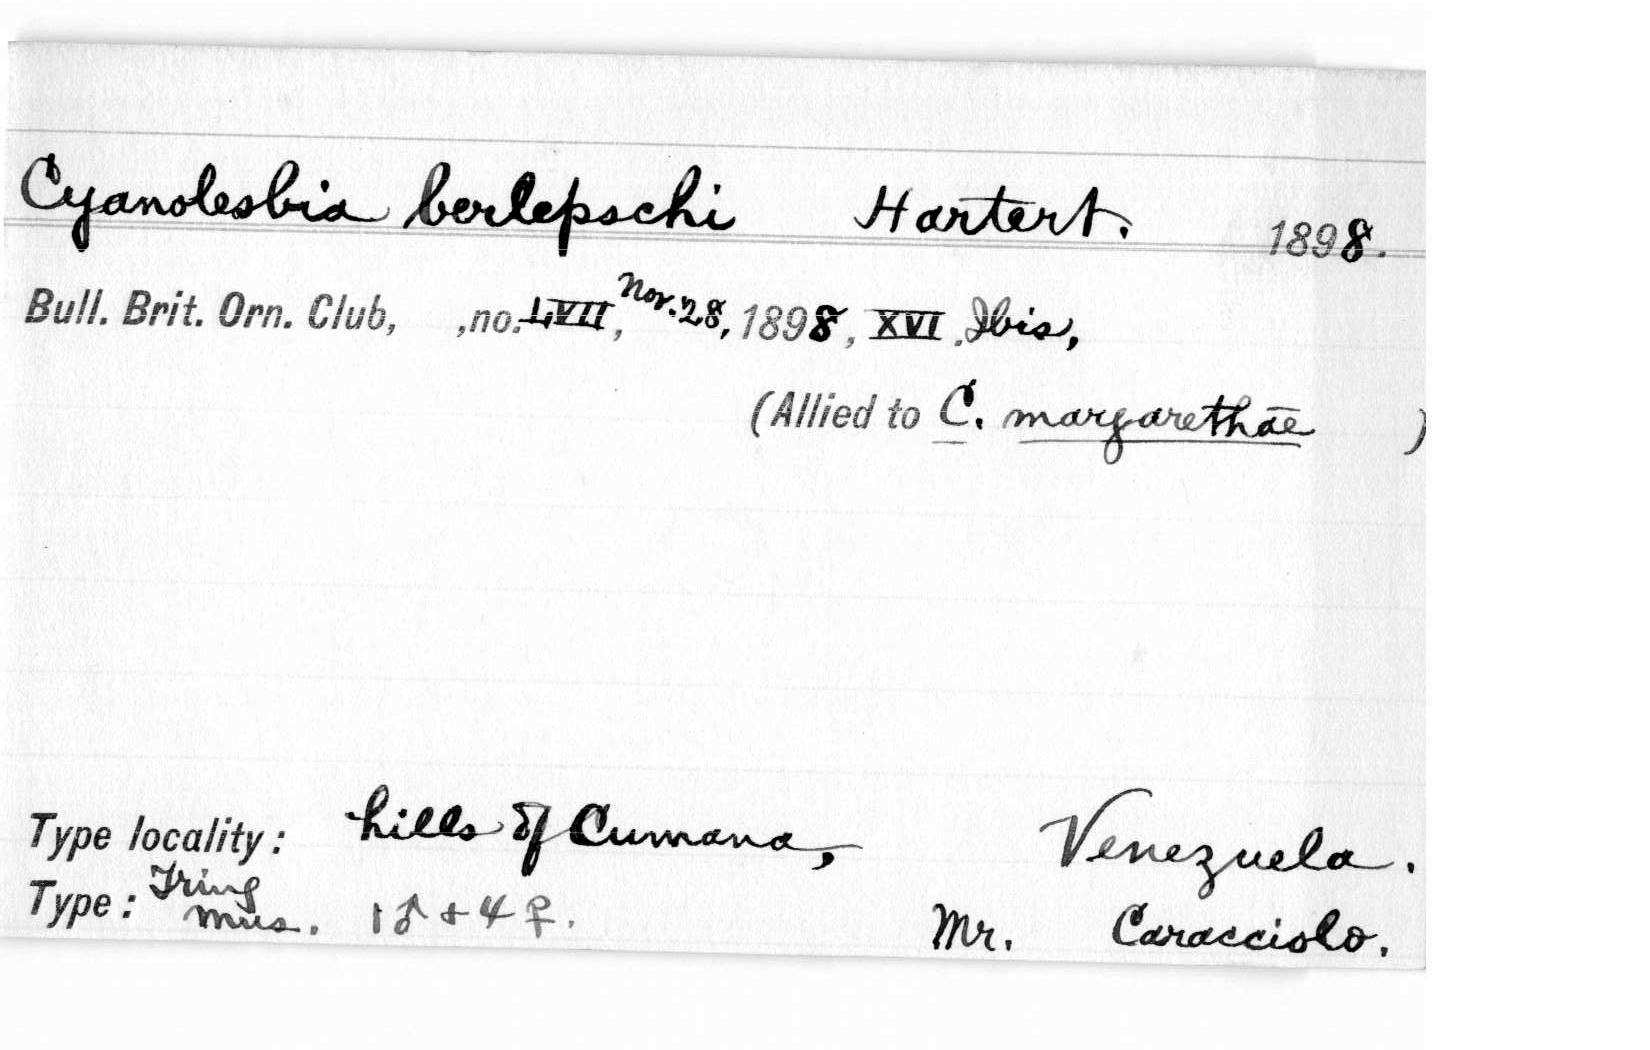 Cyanolesbia berlepschi Hartert. 1898.
Bull. Brit. Orn. Club, ,no. LVII, Nov. 28, 1898, XVI .Ibis,
(Allied to C. margarethae )
Type locality: hills of Cumana, Venezuela.
Type: Tring Mus. 1♂ + 4 ♀. Mr. Caracciolo.